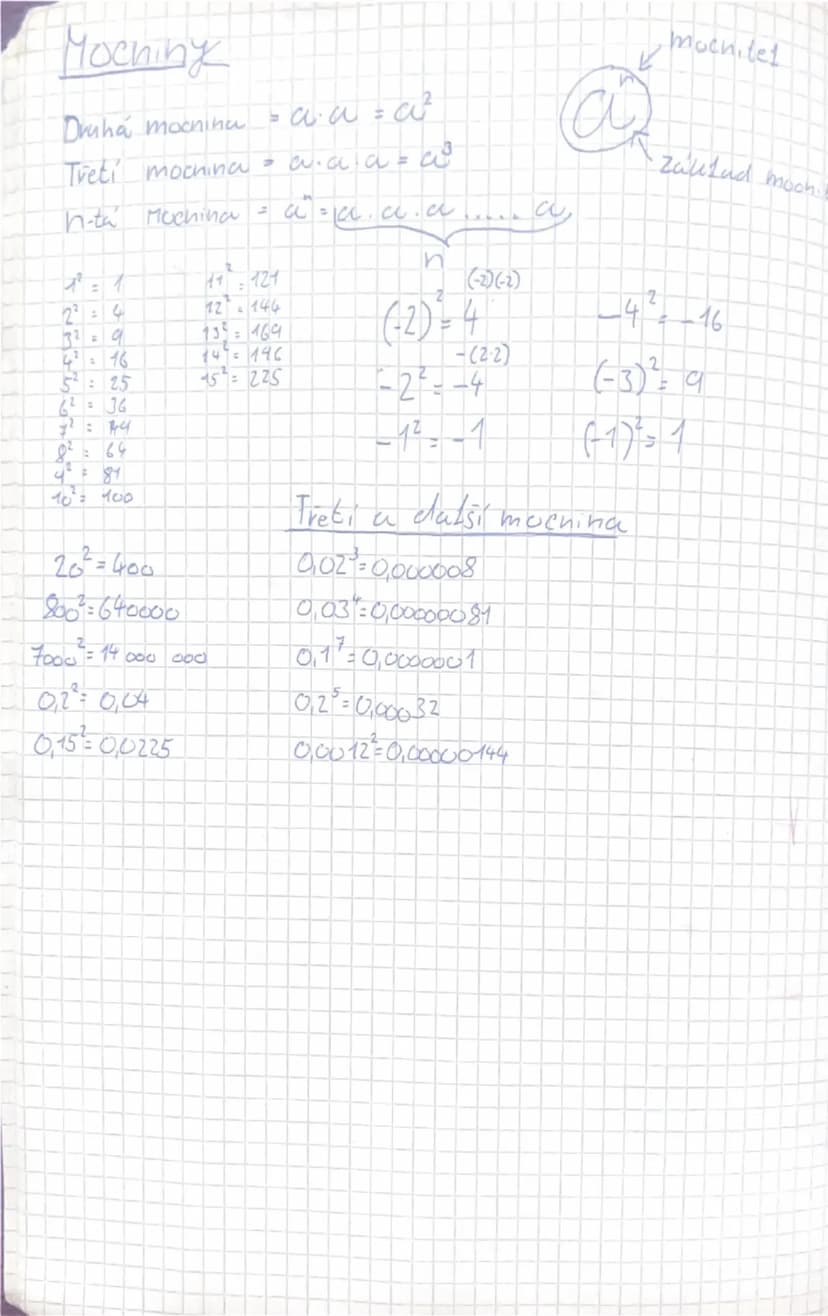 Mocniny
mocnitel
a^n
základ mocn
Druhá mocnina = a·a = a²
Třetí mocnina = a·a·a = a³
n-tá mocnina = aⁿ = a.a.a.....a
n
1² = 1
2² = 4
3² = 9
4² = 16
5² = 25
6² = 36
7² = 49
8² = 64
9² = 81
10² = 100
11² = 121
12² = 144
13² = 169
14² = 196
15² = 225
(-2)(-2)
(-2)² = 4
-(2·2)
-2² = -4
-1² = -1
-4² = -16
(-3)² = 9
(-1)² = 1
20² = 400
800² = 640000
7000² = 14 000 000
0,2² = 0,04
0,15² = 0,0225
Třetí a další mocnina
0,02³ = 0,000008
0,03⁴ = 0,00000081
0,1⁷ = 0,0000001
0,2⁵ = 0,00032
0,0012² = 0,00000144